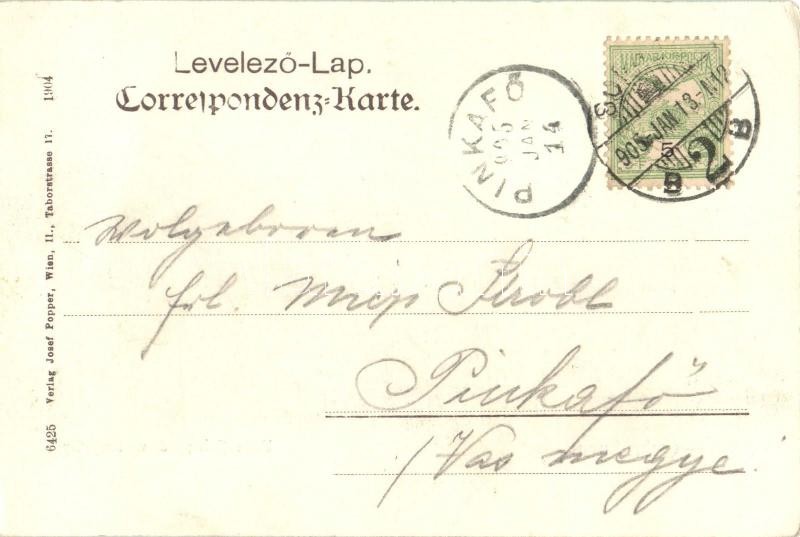 Levelező-Lap.
Correspondenz-Karte.
PINKAFŐ
905
JAN
14
MAGYAR KIR. POSTA
905 JAN 13
5
B 2 B
Wolgeboren
Frl. Mizzi Strobl
Pinkafő
(Vas megye.
6425 Verlag Josef Popper, Wien, II., Taborstrasse 17. 1904